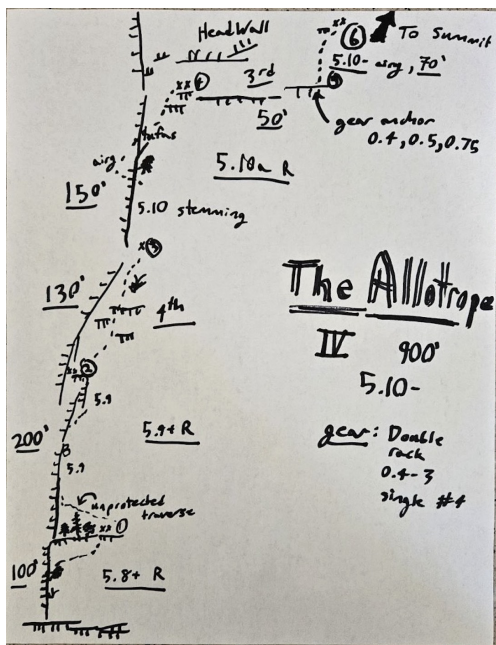 HeadWall
xx ④
3rd
50'
xx ⑥
To Summit
5.10- airy, 70'
⑤
gear anchor
0.4, 0.5, 0.75
tufas
airy
150'
5.10a R
5.10 stemming
xx ③
130'
4th
The Allotrope
IV 900'
5.10-
xx ②
5.9
200'
5.9+ R
5.9
gear: Double
rack
0.4-3
single #4
unprotected
traverse
xx ①
100'
5.8+ R